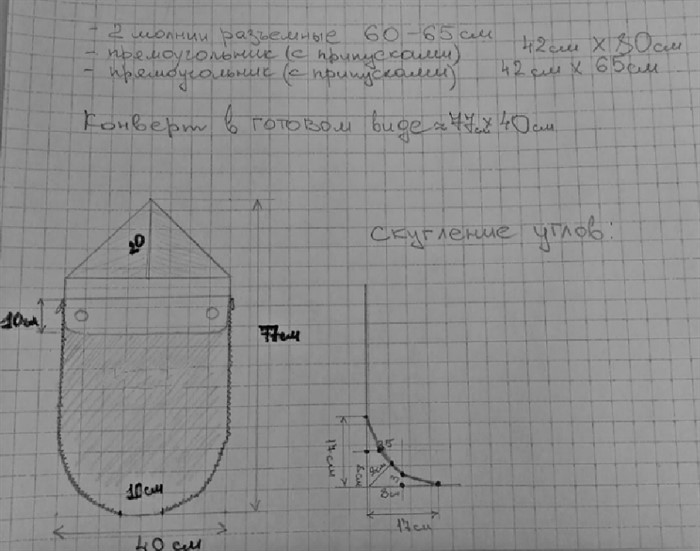 - 2 молнии разъемные 60-65см
- прямоугольник (с припусками) 42см х 80см
- прямоугольник (с припусками) 42см х 65см
Конверт в готовом виде ≈ 77х40см
Скугление углов:
20
10см
77см
17см
10см
17см
40см